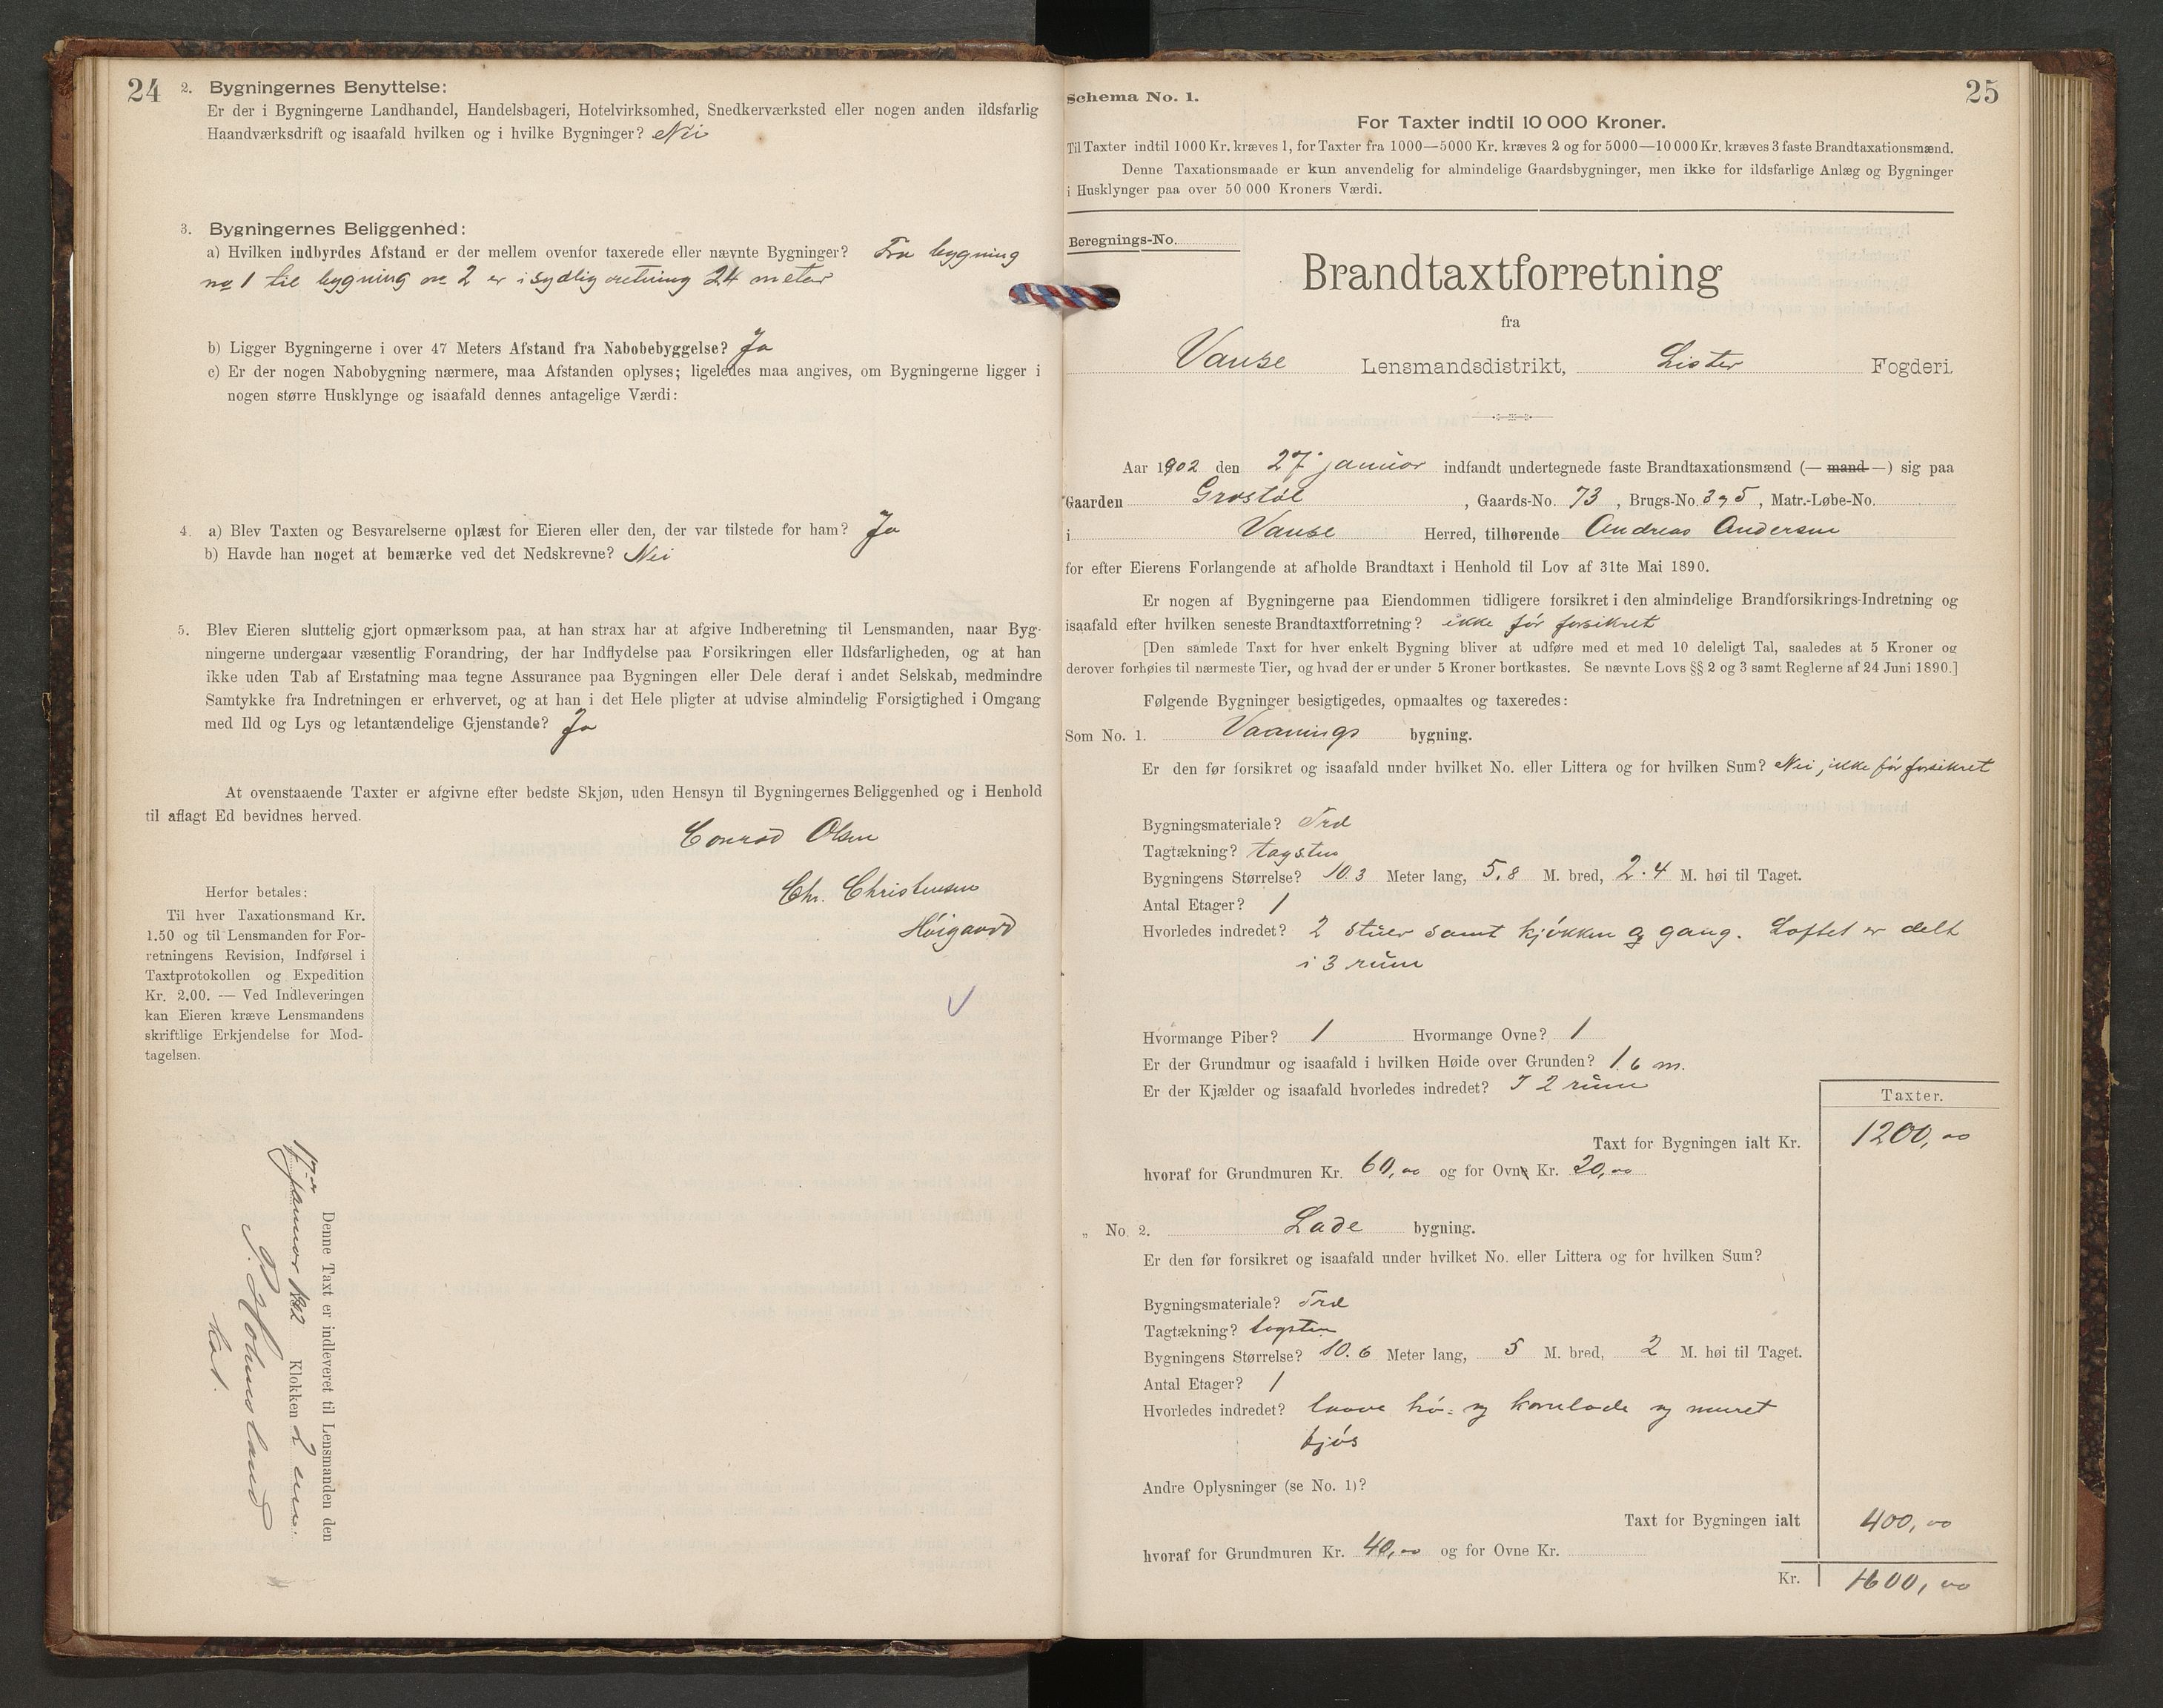 24
2. Bygningernes Benyttelse:
Er der i Bygningerne Landhandel, Handelsbageri, Hotelvirksomhed, Snedkerværksted eller nogen anden ildsfarlig
Haandværksdrift og isaafald hvilken og i hvilke Bygninger? Nei
3. Bygningernes Beliggenhed:
a) Hvilken indbyrdes Afstand er der mellem ovenfor taxerede eller nævnte Bygninger? Fra bygning
no 1 til bygning no 2 er i sydlig retning 24 meter
b) Ligger Bygningerne i over 47 Meters Afstand fra Nabobebyggelse? Ja
c) Er der nogen Nabobygning nærmere, maa Afstanden oplyses; ligeledes maa angives, om Bygningerne ligger i
nogen større Husklynge og isaafald dennes antagelige Værdi:
4. a) Blev Taxten og Besvarelserne oplæst for Eieren eller den, der var tilstede for ham? Ja
b) Havde han noget at bemærke ved det Nedskrevne? Nei
5. Blev Eieren sluttelig gjort opmærksom paa, at han strax har at afgive Indberetning til Lensmanden, naar Byg-
ningerne undergaar væsentlig Forandring, der har Indflydelse paa Forsikringen eller Ildsfarligheden, og at han
ikke uden Tab af Erstatning maa tegne Assurance paa Bygningen eller Dele deraf i andet Selskab, medmindre
Samtykke fra Indretningen er erhvervet, og at han i det Hele pligter at udvise almindelig Forsigtighed i Omgang
med Ild og Lys og letantændelige Gjenstande? Ja
At ovenstaaende Taxter er afgivne efter bedste Skjøn, uden Hensyn til Bygningernes Beliggenhed og i Henhold
til aflagt Ed bevidnes herved.
Conrad Olsen
Chr. Christensen
Høigaard
Herfor betales:
Til hver Taxationsmand Kr.
1.50 og til Lensmanden for For-
retningens Revision, Indførsel i
Taxtprotokollen og Expedition
Kr. 2.00. — Ved Indleveringen
kan Eieren kræve Lensmandens
skriftlige Erkjendelse for Mod-
tagelsen.
Denne Taxt er indleveret til Lensmanden den
januar 1902 Klokken 2 em.
25
Schema No. 1.
For Taxter indtil 10 000 Kroner.
Til Taxter indtil 1000 Kr. kræves 1, for Taxter fra 1000—5000 Kr. kræves 2 og for 5000—10 000 Kr. kræves 3 faste Brandtaxationsmænd.
Denne Taxationsmaade er kun anvendelig for almindelige Gaardsbygninger, men ikke for ildsfarlige Anlæg og Bygninger
i Husklynger paa over 50 000 Kroners Værdi.
Beregnings-No.
Brandtaxtforretning
fra
Vanse Lensmandsdistrikt, Lister Fogderi.
Aar 1902 den 27 januar indfandt undertegnede faste Brandtaxationsmænd (— mand —) sig paa
Gaarden Grostøl, Gaards-No. 73, Brugs-No. 3 og 5, Matr.-Løbe-No.
i Vanse Herred, tilhørende Andreas Andersen
for efter Eierens Forlangende at afholde Brandtaxt i Henhold til Lov af 31te Mai 1890.
Er nogen af Bygningerne paa Eiendommen tidligere forsikret i den almindelige Brandforsikrings-Indretning og
isaafald efter hvilken seneste Brandtaxtforretning? ikke før forsikret
[Den samlede Taxt for hver enkelt Bygning bliver at udføre med et med 10 deleligt Tal, saaledes at 5 Kroner og
derover forhøies til nærmeste Tier, og hvad der er under 5 Kroner bortkastes. Se nævnte Lovs §§ 2 og 3 samt Reglerne af 24 Juni 1890.]
Følgende Bygninger besigtigedes, opmaaltes og taxeredes:
Som No. 1. Vaanings bygning.
Er den før forsikret og isaafald under hvilket No. eller Littera og for hvilken Sum? Nei, ikke før forsikret
Bygningsmateriale? Træ
Tagtækning? tagsten
Bygningens Størrelse? 10.3 Meter lang, 5.8 M. bred, 2.4 M. høi til Taget.
Antal Etager? 1
Hvorledes indredet? 2 stuer samt kjøkken og gang. Loftet er delt
i 3 rum
Hvormange Piber? 1 Hvormange Ovne? 1
Er der Grundmur og isaafald i hvilken Høide over Grunden? 1.6 m.
Er der Kjælder og isaafald hvorledes indredet? I 2 rum
Taxter.
Taxt for Bygningen ialt Kr. 1200,00
hvoraf for Grundmuren Kr. 60,00 og for Ovne Kr. 20,00
„ No. 2. Lade bygning.
Er den før forsikret og isaafald under hvilket No. eller Littera og for hvilken Sum?
Bygningsmateriale? Træ
Tagtækning? tagsten
Bygningens Størrelse? 10.6 Meter lang, 5 M. bred, 2 M. høi til Taget.
Antal Etager? 1
Hvorledes indredet? laave hø- og kornlade og muret
fjøs
Andre Oplysninger (se No. 1)?
Taxt for Bygningen ialt 400,00
hvoraf for Grundmuren Kr. 40,00 og for Ovne Kr.
Kr. 1600,00